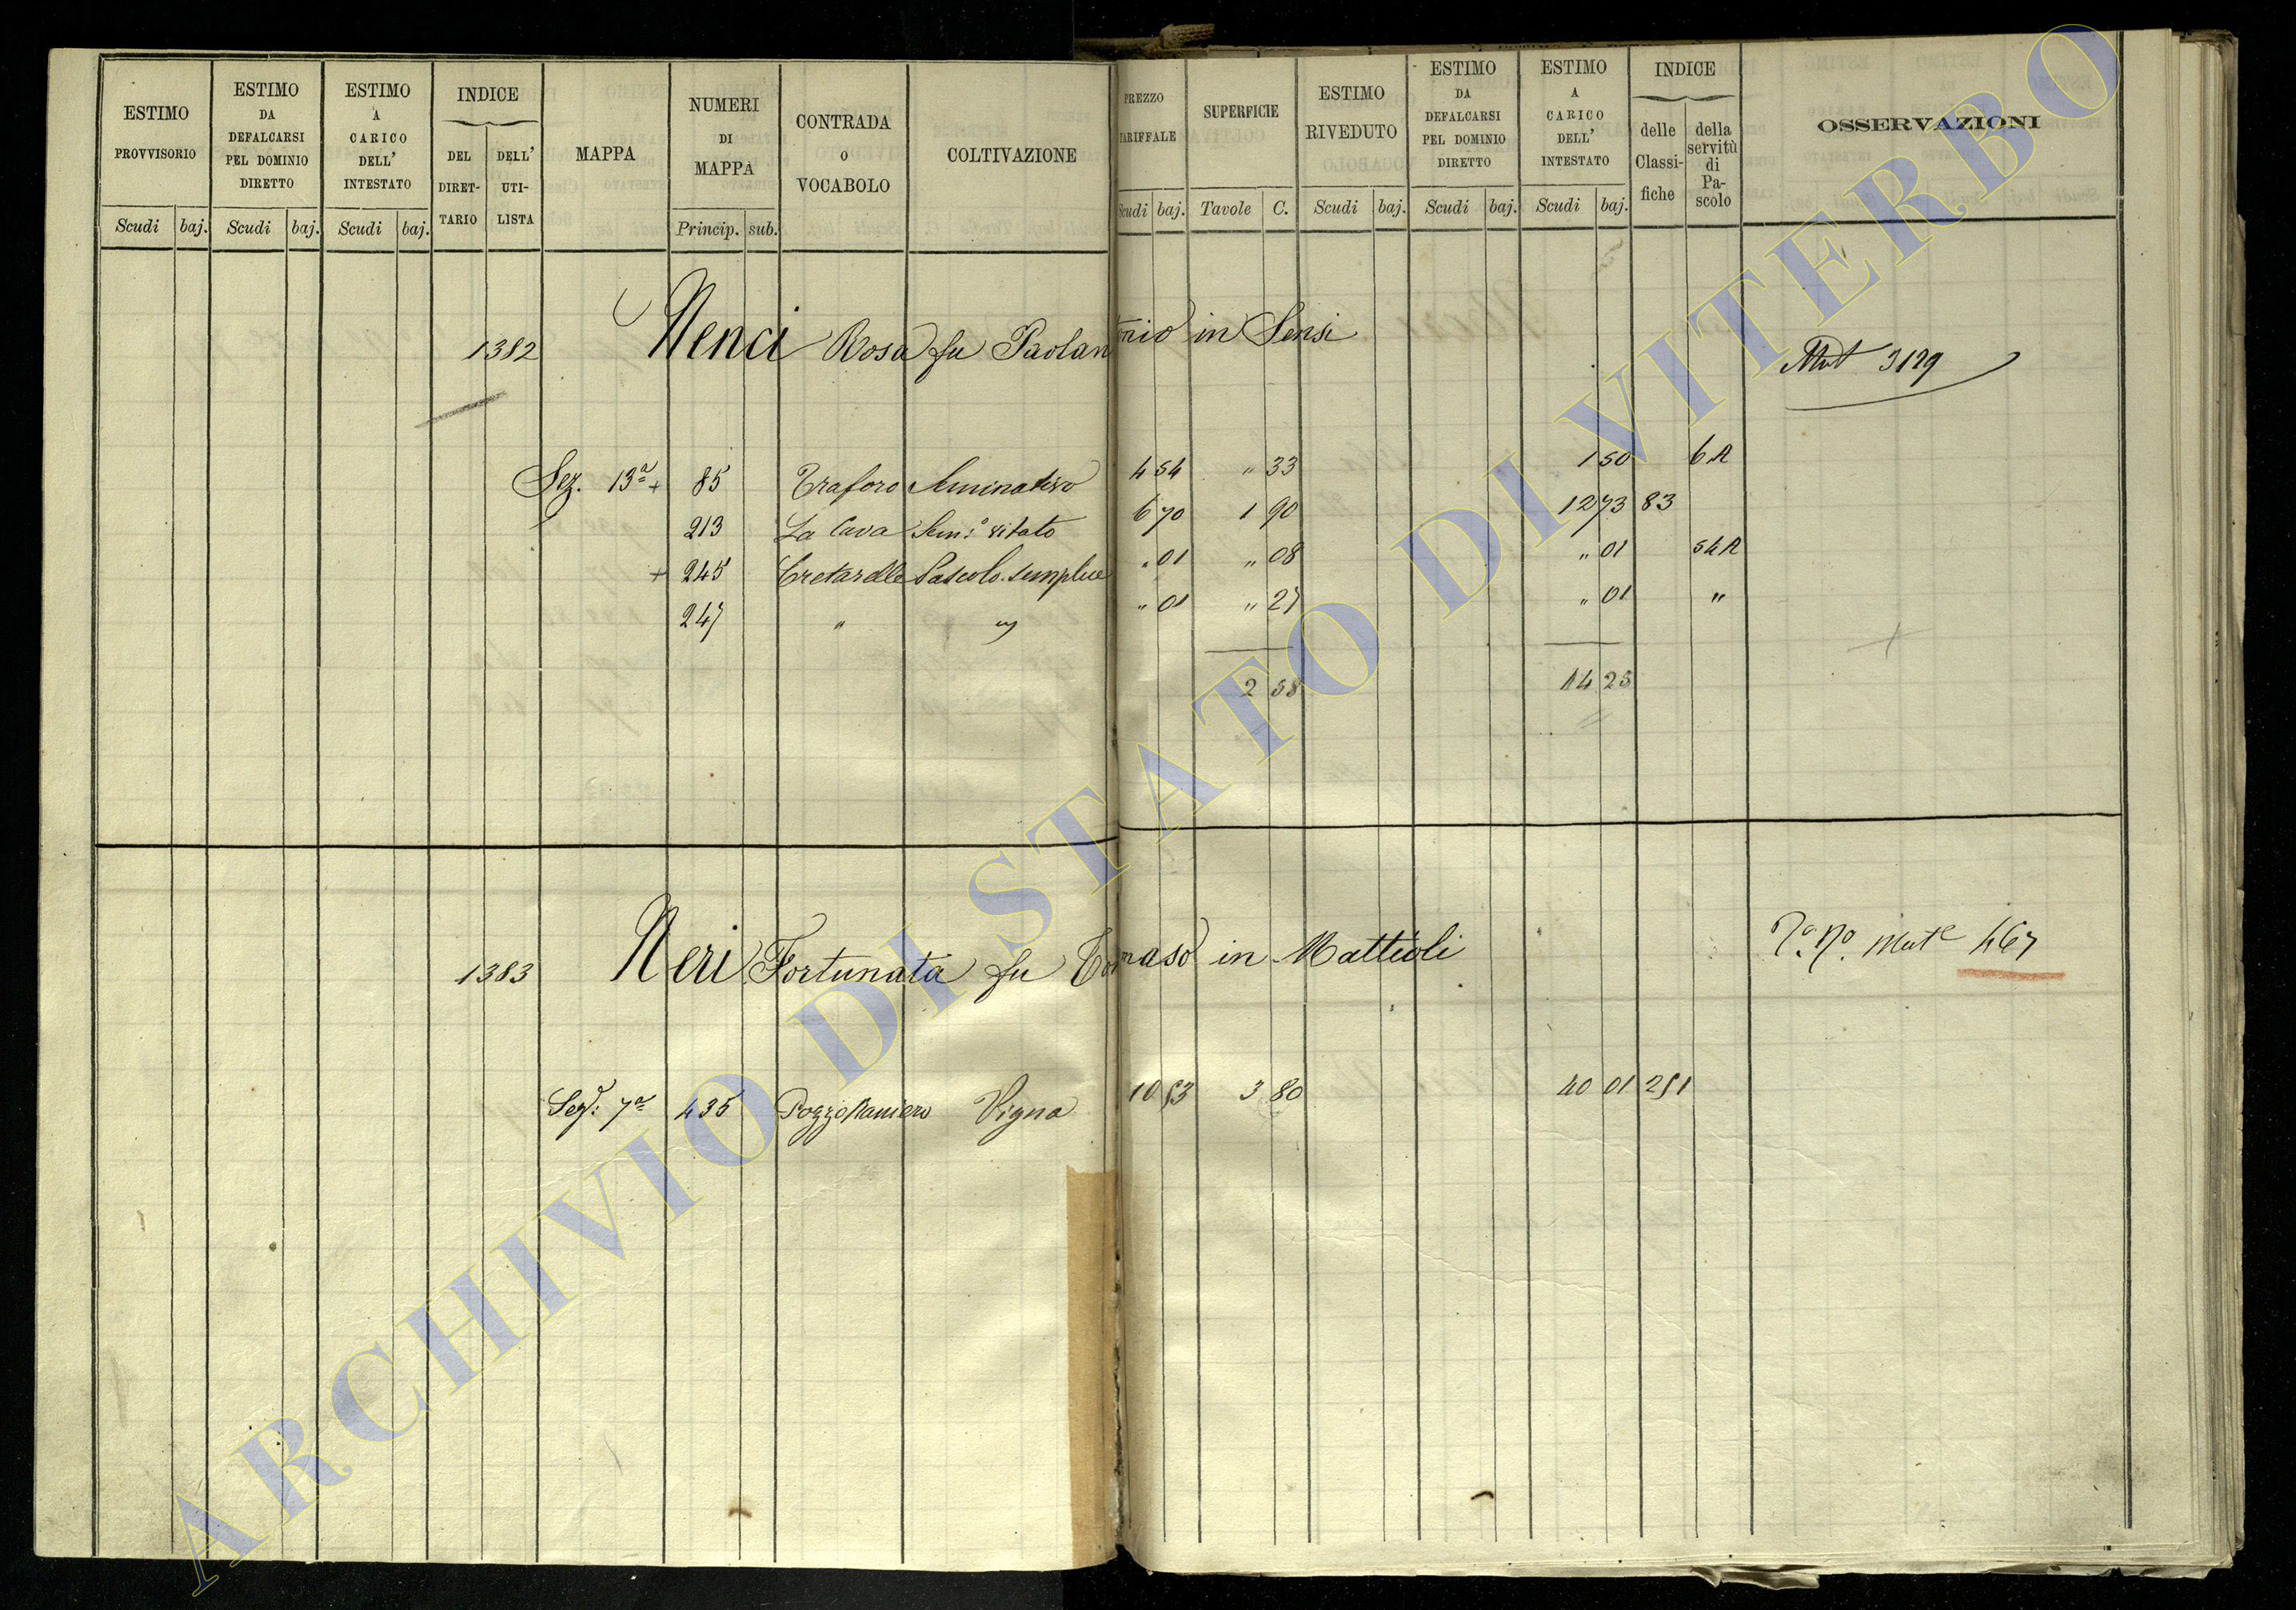 ESTIMO PROVVISORIO
Scudi baj.
ESTIMO DA DEFALCARSI PEL DOMINIO DIRETTO
Scudi baj.
ESTIMO A CARICO DELL' INTESTATO
Scudi baj.
INDICE
DEL DIRET-TARIO
DELL' UTI-LISTA
MAPPA
NUMERI DI MAPPA
Princip. sub.
CONTRADA O VOCABOLO
COLTIVAZIONE
PREZZO TARIFFALE
Scudi baj.
SUPERFICIE
Tavole C.
ESTIMO RIVEDUTO
Scudi baj.
ESTIMO DA DEFALCARSI PEL DOMINIO DIRETTO
Scudi baj.
ESTIMO A CARICO DELL' INTESTATO
Scudi baj.
INDICE
delle Classi-fiche
della servitù di Pa-scolo
OSSERVAZIONI
1382 Nenci Rosa fu Paolantonio in Sensi Mut 3129
Sez. 13ª + 85 Traforo Seminativo 4 54 " 33 1 50 6 A
213 La Cava Sem:º vitato 6 70 1 90 12 73 83
+ 245 Cretarelle Pascolo semplice " 01 " 08 " 01 54 A
247 " " " 01 " 27 " 01 "
2 58 14 25
1383 Neri Fortunata fu Tomaso in Mattioli Mute 467
Sez: 7ª 435 Pozzo Raniero Vigna 10 53 3 80 40 01 251
ARCHIVIO DI STATO DI VITERBO